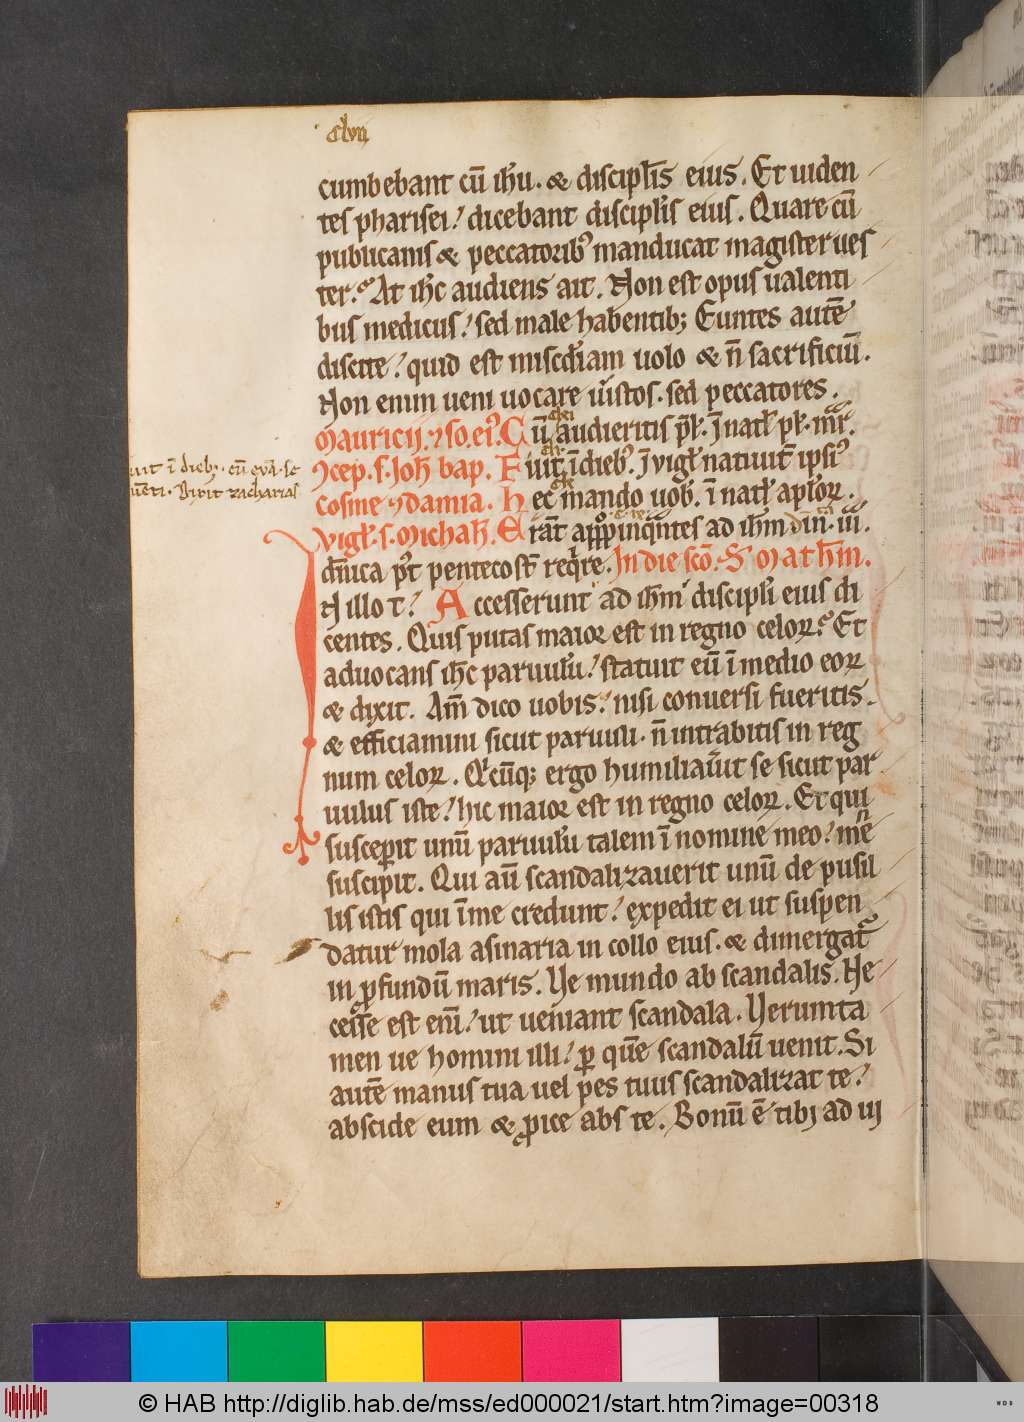 clvii
cumbebant cū ih̄u. & discipl̄is eius. Et uiden
tes pharisei! dicebant discipl̄is eius. Quare cū
publicanis & peccatorib; manducat magister ues
ter? At ih̄c audiens ait. Non est opus ualenti
bus medicus! sed male habentib; Euntes autē
discite! quid est mis̄cdiam uolo & n̄ sacrificiū.
Non enim ueni uocare iustos. sed peccatores.
Mauricij. ⁊ so. ei. Cū audieritis pl̄. J natl̄ pl̄. mr̄.
uit ī dieb; . cū euā. se
ɔcep. s. Joh̄ bap. Fuit ī dieb; J vigl̄ natiuit̄ ipsi
uēti. Dixit zacharias
Cosme ⁊ damia. Hec mando uob̄. ī natl̄ apl̄oꝝ.
Vigl̄. s. Michah̄. Erāt appropinqntes ad ih̄m dīn. iii.
dn̄ica p̄t pentecost̄ reqre. In die sc̄o. S. Math̄m.
N illo t̄! Accesserunt ad ih̄m discipl̄i eius di
centes. Quis putas maior est in regno celoꝝ? Et
aduocans ih̄c paruulū! statuit eū ī medio eoꝝ
& dixit. Am̄ dico uobis! nisi conuersi fueritis.
& efficiamini sicut paruuli. n̄ intrabitis in reg
num celoꝝ. Qicūq; ergo humiliauit se sicut par
uulus iste! hic maior est in regno celoꝝ. Et qui
suscepit unū paruulū talem ī nomine meo! mē
suscipit. Qui aūt scandalizauerit unū de pusil
lis istis qui ī me credunt! expedit ei ut suspen
datur mola asinaria in collo eius. & dimergat᷑
in ꝓfundū maris. Ve mundo ab scandalis. Ne
cesse est eni̅! ut ueniant scandala. Verumta
men ue homini illi! ꝑ quē scandalū uenit. Si
autē manus tua uel pes tuus scandalizat te!
abscide eum & ꝓice abs te. Bonū ē tibi ad ui
© HAB http://diglib.hab.de/mss/ed000021/start.htm?image=00318